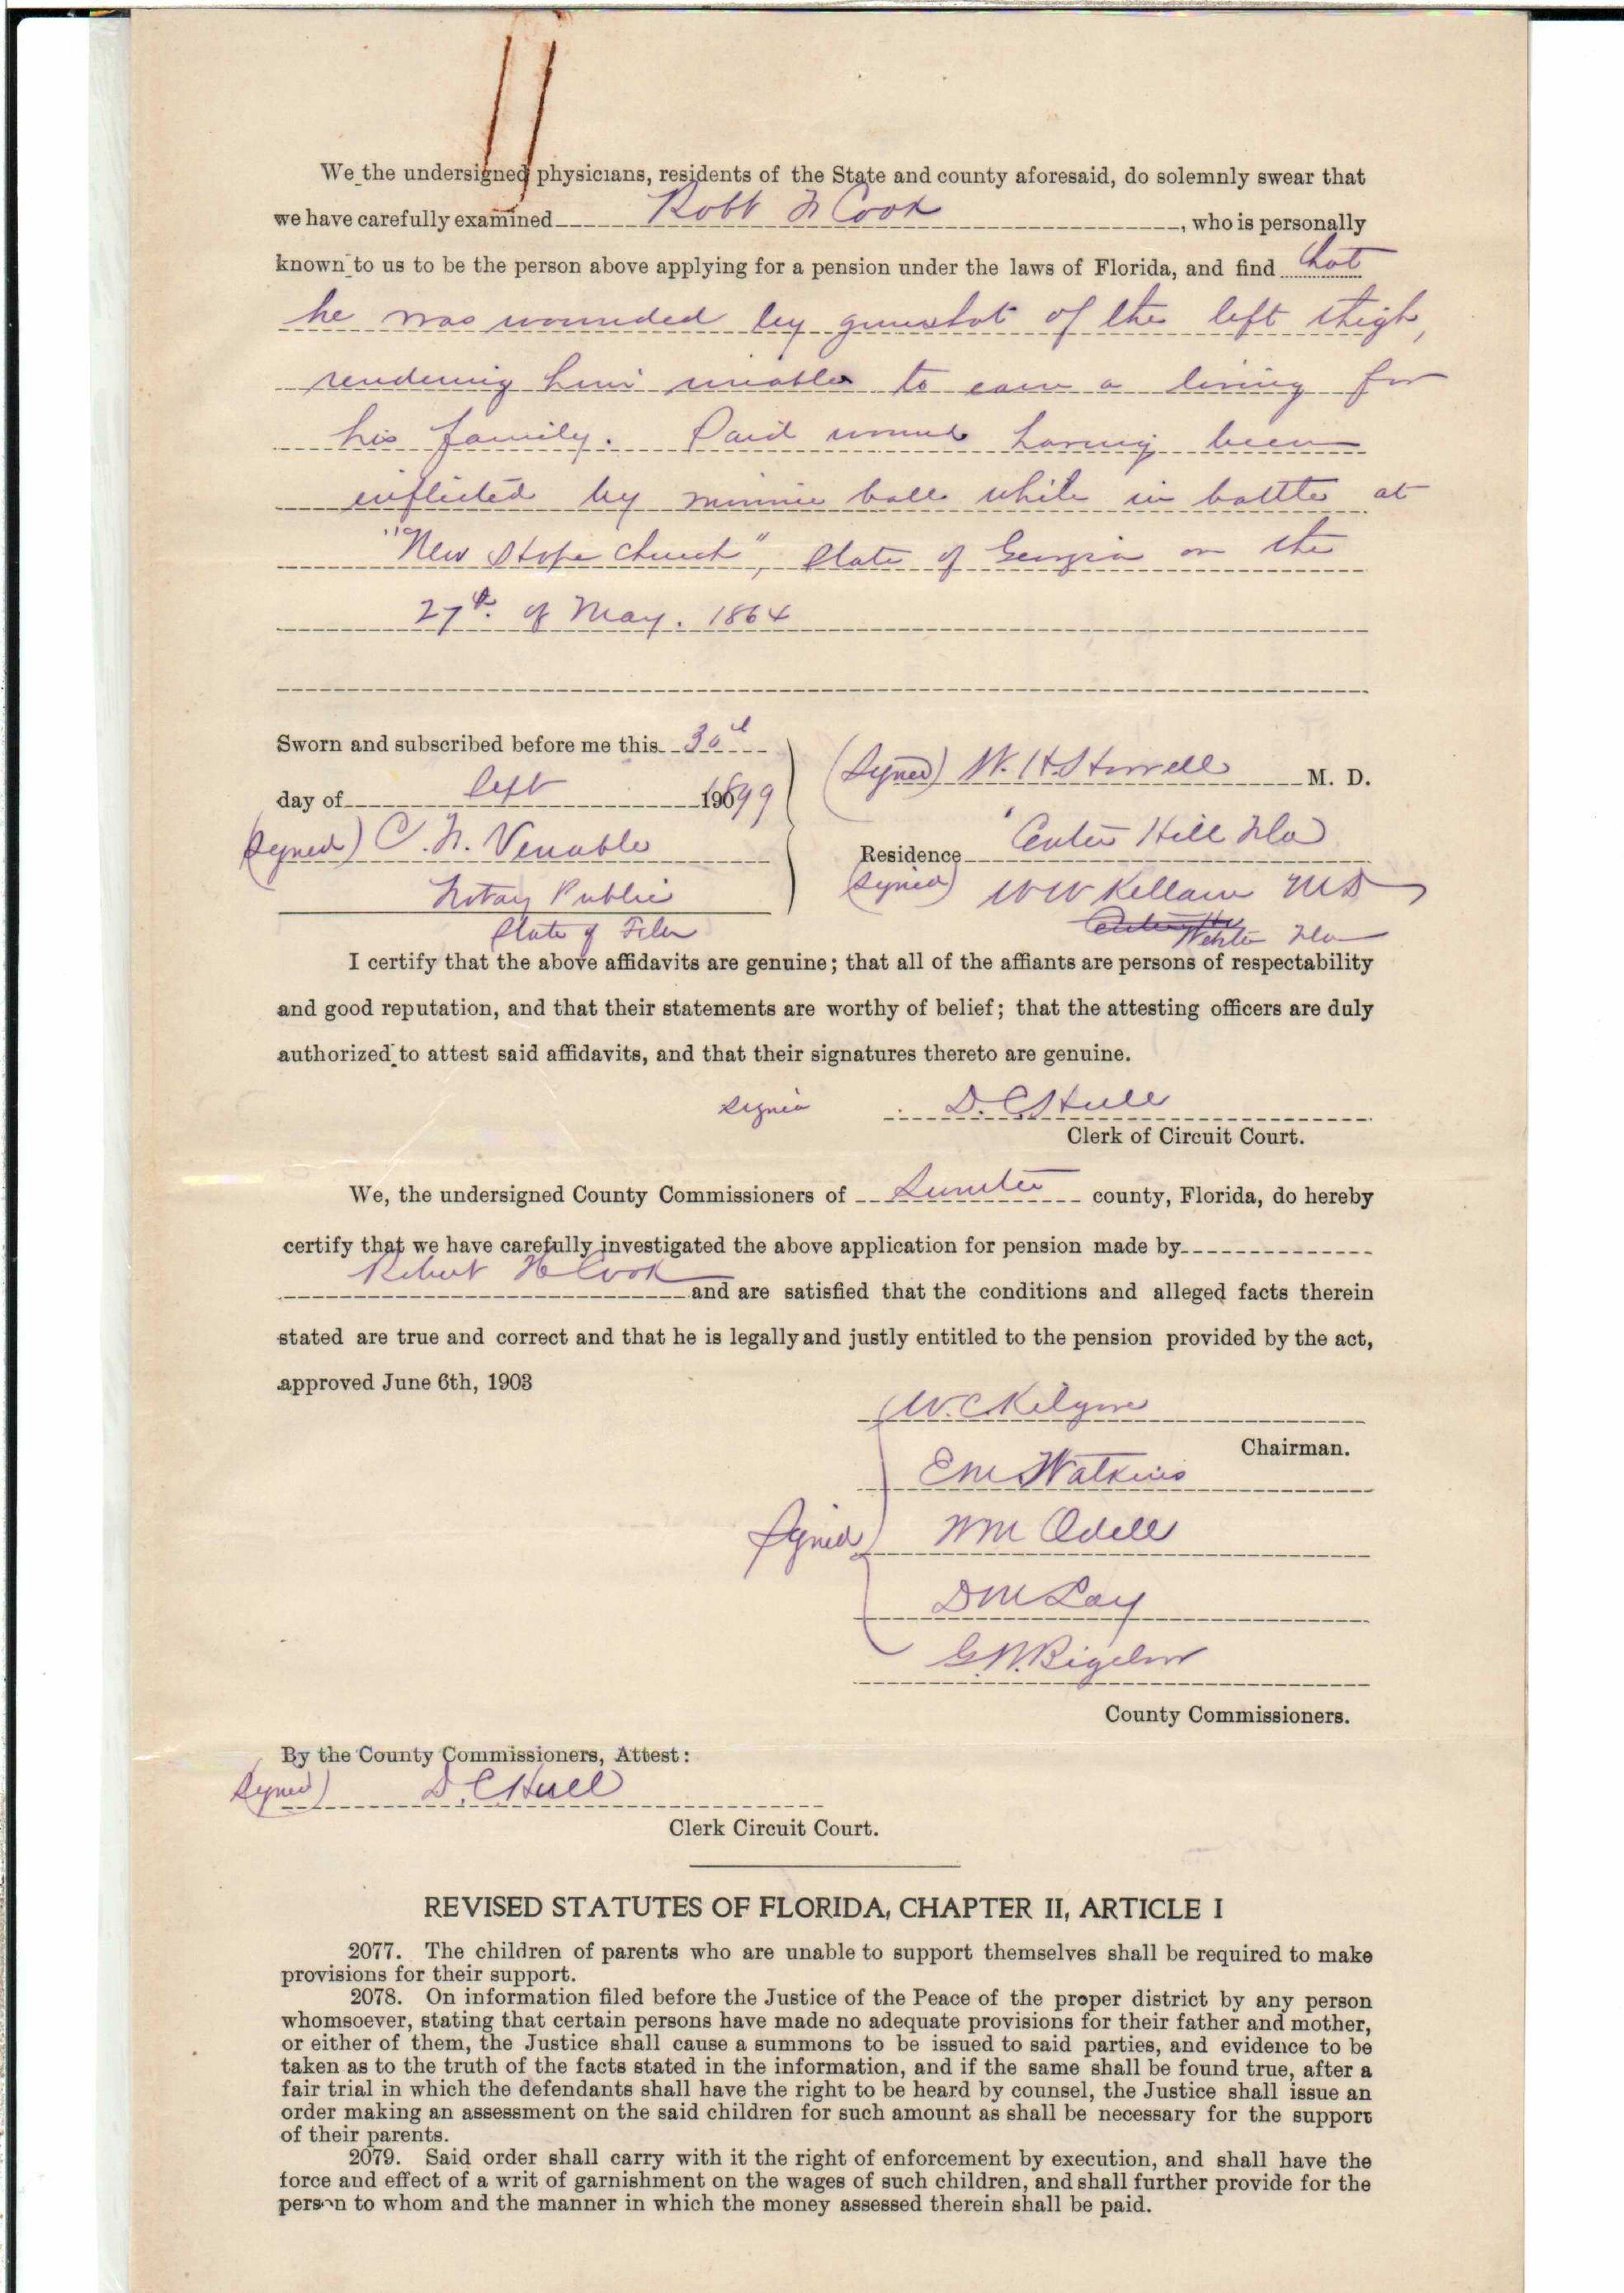 We the undersigned physicians, residents of the State and county aforesaid, do solemnly swear that
we have carefully examined Robt H Cook, who is personally
known to us to be the person above applying for a pension under the laws of Florida, and find that
he was wounded by gunshot of the left thigh,
rendering him unable to earn a living for
his family. Said wound having been
inflicted by minnie ball while in battle at
"New Hope Church", State of Georgia on the
27th. of May. 1864
Sworn and subscribed before me this 30th
day of Sept 1899
(Signed) W. H. Stowell M. D.
(Signed) C. N. Venable
Residence Center Hill Fla
Notary Public
(Signed) W W Kellam MD
State of Fla
Webster Fla
I certify that the above affidavits are genuine; that all of the affiants are persons of respectability
and good reputation, and that their statements are worthy of belief; that the attesting officers are duly
authorized to attest said affidavits, and that their signatures thereto are genuine.
Signed D. C. Hull
Clerk of Circuit Court.
We, the undersigned County Commissioners of Sumter county, Florida, do hereby
certify that we have carefully investigated the above application for pension made by
Robert H Cook and are satisfied that the conditions and alleged facts therein
stated are true and correct and that he is legally and justly entitled to the pension provided by the act,
approved June 6th, 1903
W. C. Kilgore
Chairman.
E M Watkins
Signed Wm Odell
D M Lay
G. W. Bigelow
County Commissioners.
By the County Commissioners, Attest:
(Signed) D. C. Hull
Clerk Circuit Court.
REVISED STATUTES OF FLORIDA, CHAPTER II, ARTICLE I
2077. The children of parents who are unable to support themselves shall be required to make
provisions for their support.
2078. On information filed before the Justice of the Peace of the proper district by any person
whomsoever, stating that certain persons have made no adequate provisions for their father and mother,
or either of them, the Justice shall cause a summons to be issued to said parties, and evidence to be
taken as to the truth of the facts stated in the information, and if the same shall be found true, after a
fair trial in which the defendants shall have the right to be heard by counsel, the Justice shall issue an
order making an assessment on the said children for such amount as shall be necessary for the support
of their parents.
2079. Said order shall carry with it the right of enforcement by execution, and shall have the
force and effect of a writ of garnishment on the wages of such children, and shall further provide for the
person to whom and the manner in which the money assessed therein shall be paid.